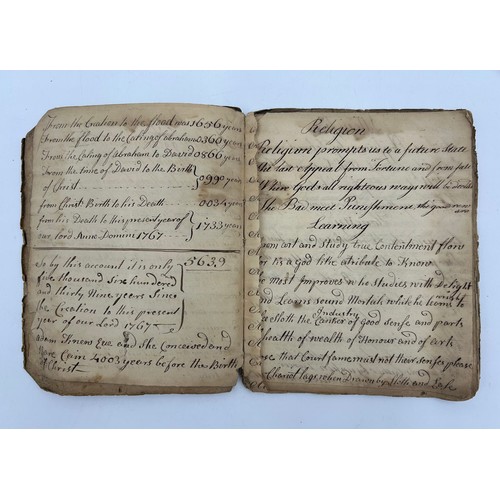 From the Creation to the flood was 1656 year
From the flood to the Caling of abraham 0360 year
From the Caling of Abraham to David 0866 year
From the time of David to the Birth
of Christ 0990 year
from Christ Birth to his Death 0034 year
from his Death to this present year of
our lord Anno Domini 1767 1733 years
5639
So by this account it is only
five thousand Six hundred
and thirty Nine years Since
the Creation to this present
year of our Lord 1767
adam Knew Eve and she Conceived and
Bare Cain 4003 years before the Birth
of Christ
Religion
Religion prompts us to a future State
the last appeal from Fortune and from fate
Where God all righteous ways will be
The Bad meet Punishment the good
Learning
From art and Study true Contentment flow
For tis a god like atribute to Know
He most Improves who Studies with Delight
And Learns sound Morlas while he learns to write
Industry
Sloth the Canker of good sense and parts
of wealth of Honour and of art
that Court fame must not their senses please
Chariot lags when Drawn by Sloth and Ease